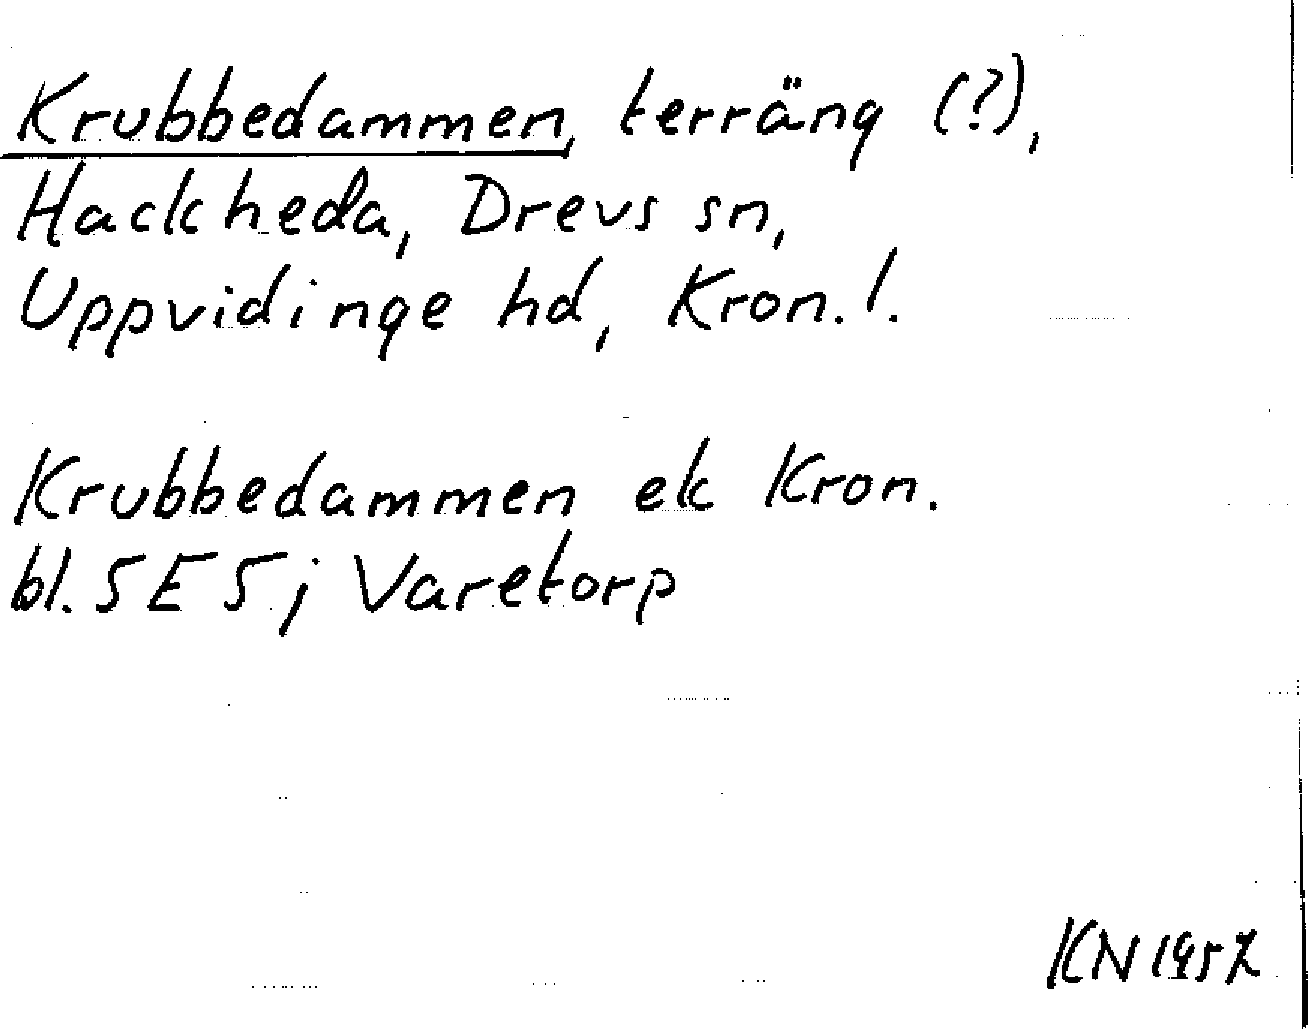 Krubbedammen, terräng (?),
Hackheda, Drevs sn,
Uppvidinge hd, Kron. l.
Krubbedammen ek Kron.
bl. 5 E 5; Varetorp
KN 1957